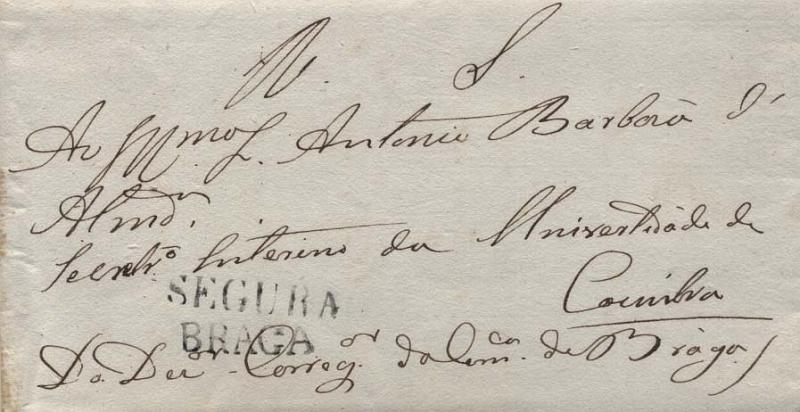 N. S.
Ao Illmo S. Antonio Barboza d'
Almdª.
Secretrº Interino da Universidade de
Coimbra
SEGURA
BRAGA
Do Dez.or Correg.or da Com.ca de Braga